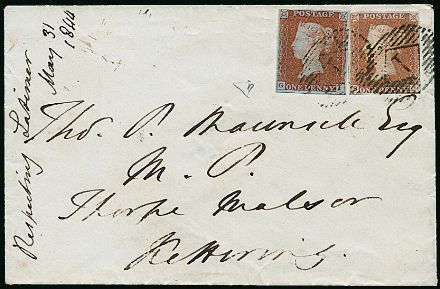 Respecting Latimer
May 31
1844
POSTAGE
ONE PENNY
POSTAGE
ONE PENNY
Tho. P. Maunsell Esq
M. P.
Thorpe Malsor
Kettering.